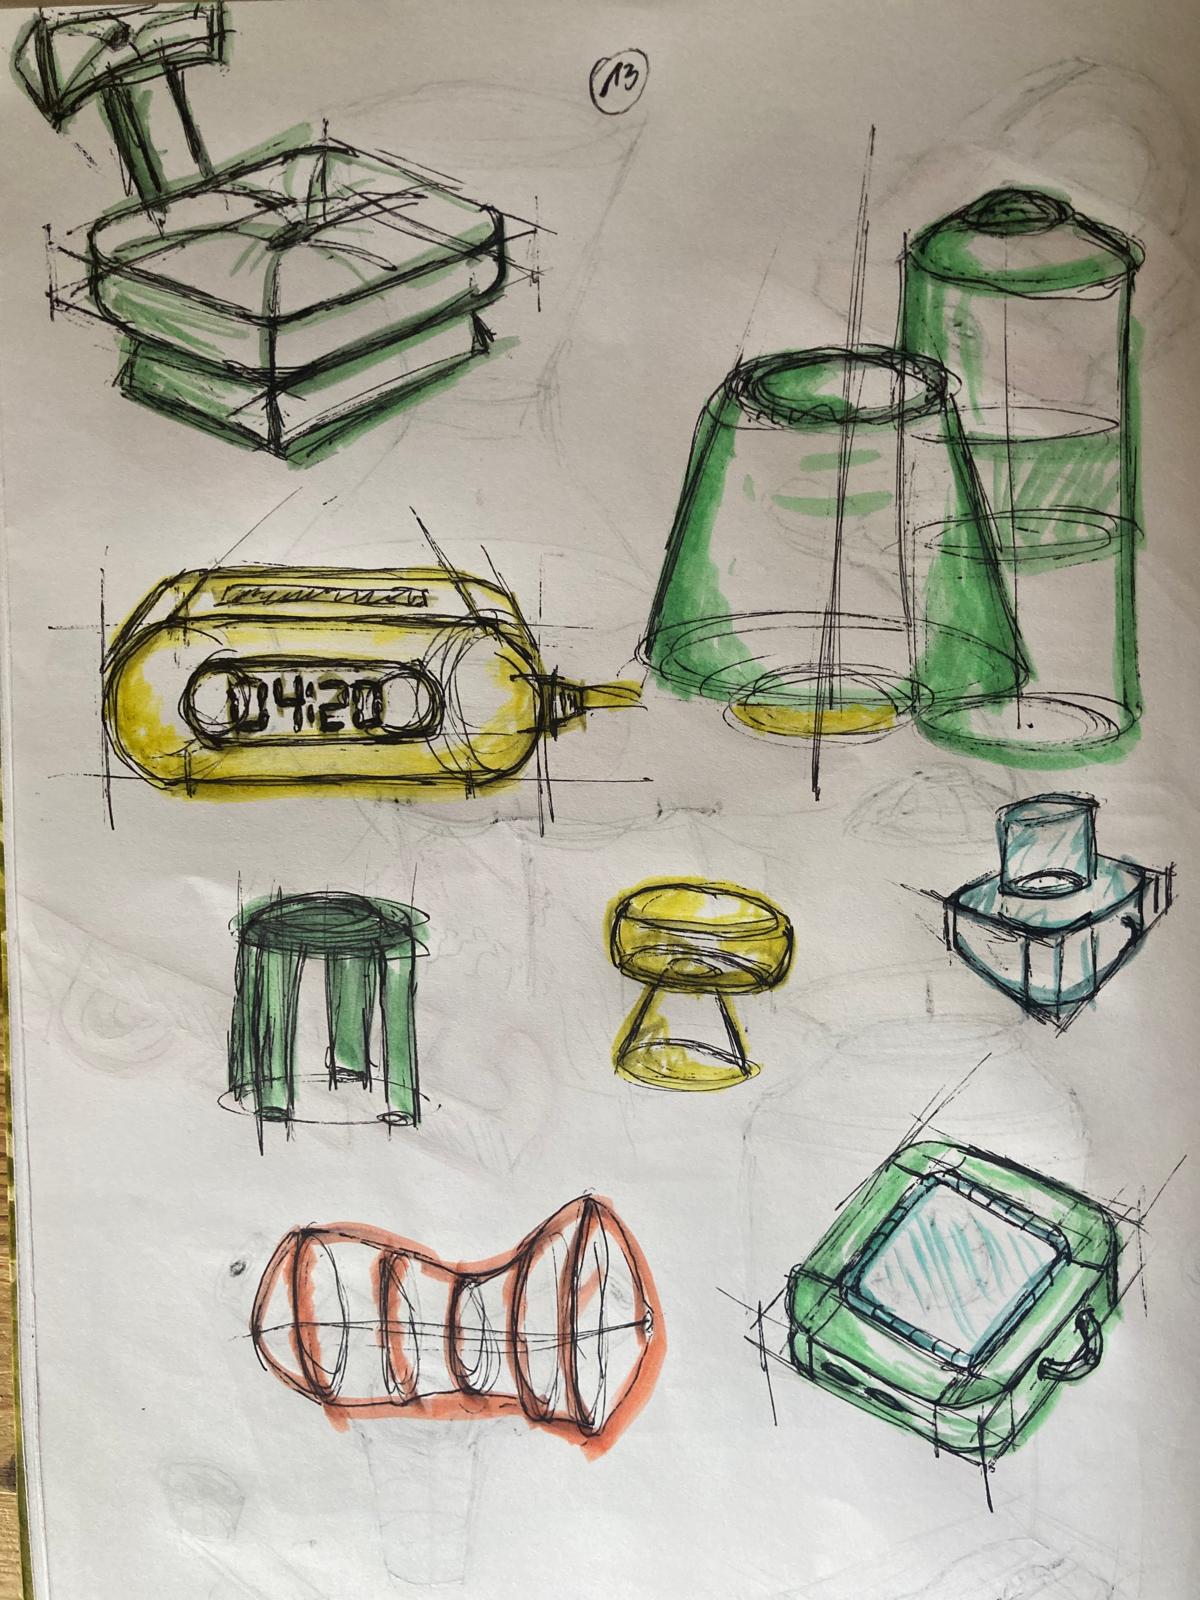 13
04:20